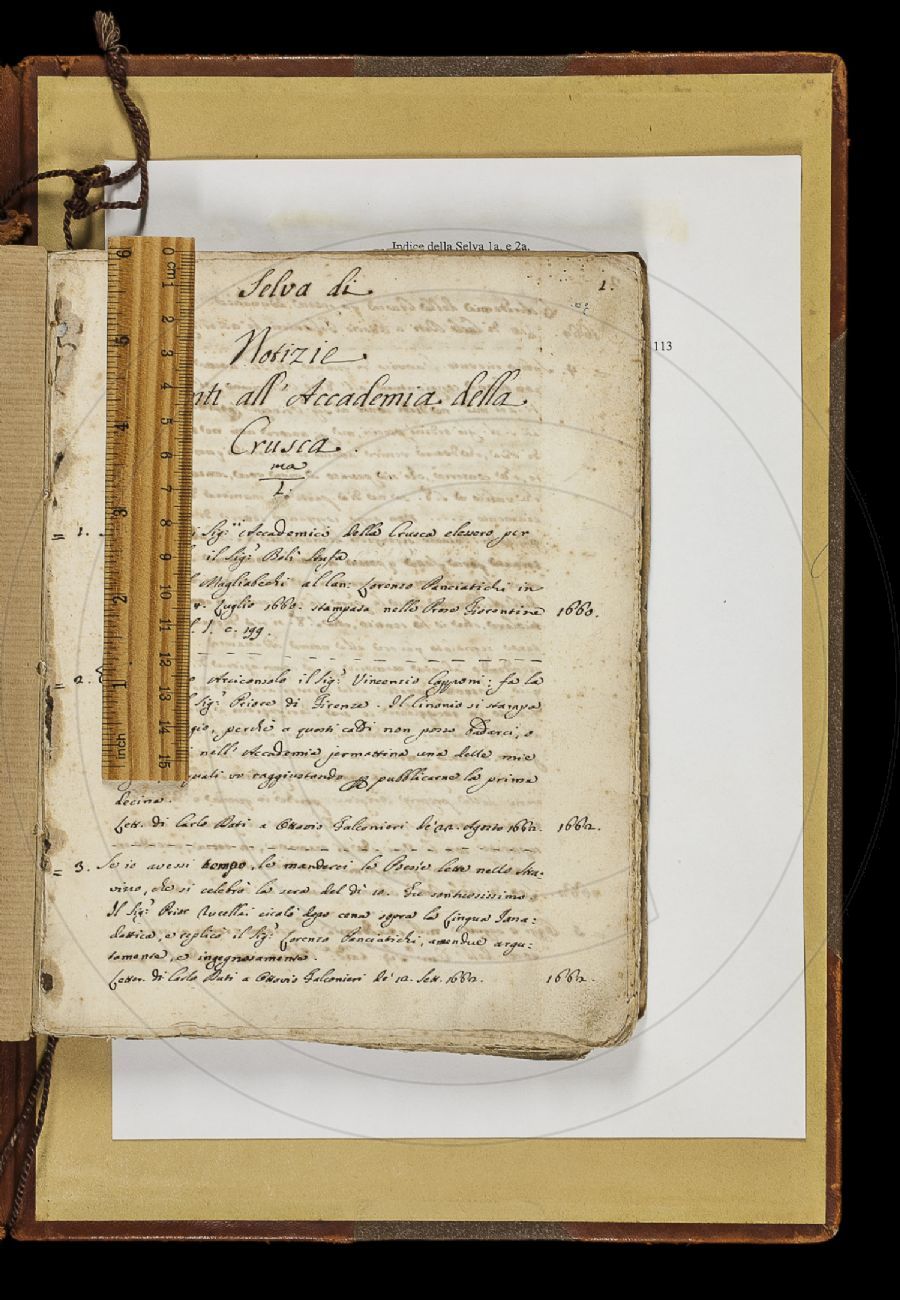 Indice della Selva 1a. e 2a.
113
Selva di
1.
Notizie
nti all' Accademia della
Crusca.
ma
1.
= 1. i Sig.ri Accademici della Crusca elessero per
il Sig.r
Magliabechi al Can: Lorenzo Panciatichi in
Luglio 1660. stampata nelle Prose Fiorentine 1660.
c. 199.
= 2. Arciconsolo il Sig.r Vincenzio Capponi; fa la
Sig.r Priore di Firenze. Il Cinonio si stampa
gio, perchè a questi caldi non posso badarci, e
nell' Accademia jermattina una delle mie
quali vo raggiustando per pubblicarne la prima
decina.
Lett. di Carlo Dati a Ottavio Falconieri de' 22. Agosto 1662. 1662.
= 3. Se io avessi tempo, le manderei le Poesie lette nello Stra-
vizzo, che si celebrò la sera del dì 10. Fu sontuosissimo
Il Sig.r Prior Rucellai cicalò dopo cena sopra la Lingua Jana:
dattica, e replicò il Sig.r Lorenzo Panciatichi, amendue argu:
tamente, e ingegnosamente.
Letter. di Carlo Dati a Ottavio Falconieri de' 12. Sett. 1662. 1662.
0 cm 1 2 3 4 5 6 7 8 9 10 11 12 13 14 15
inch 1 2 3 4 5 6